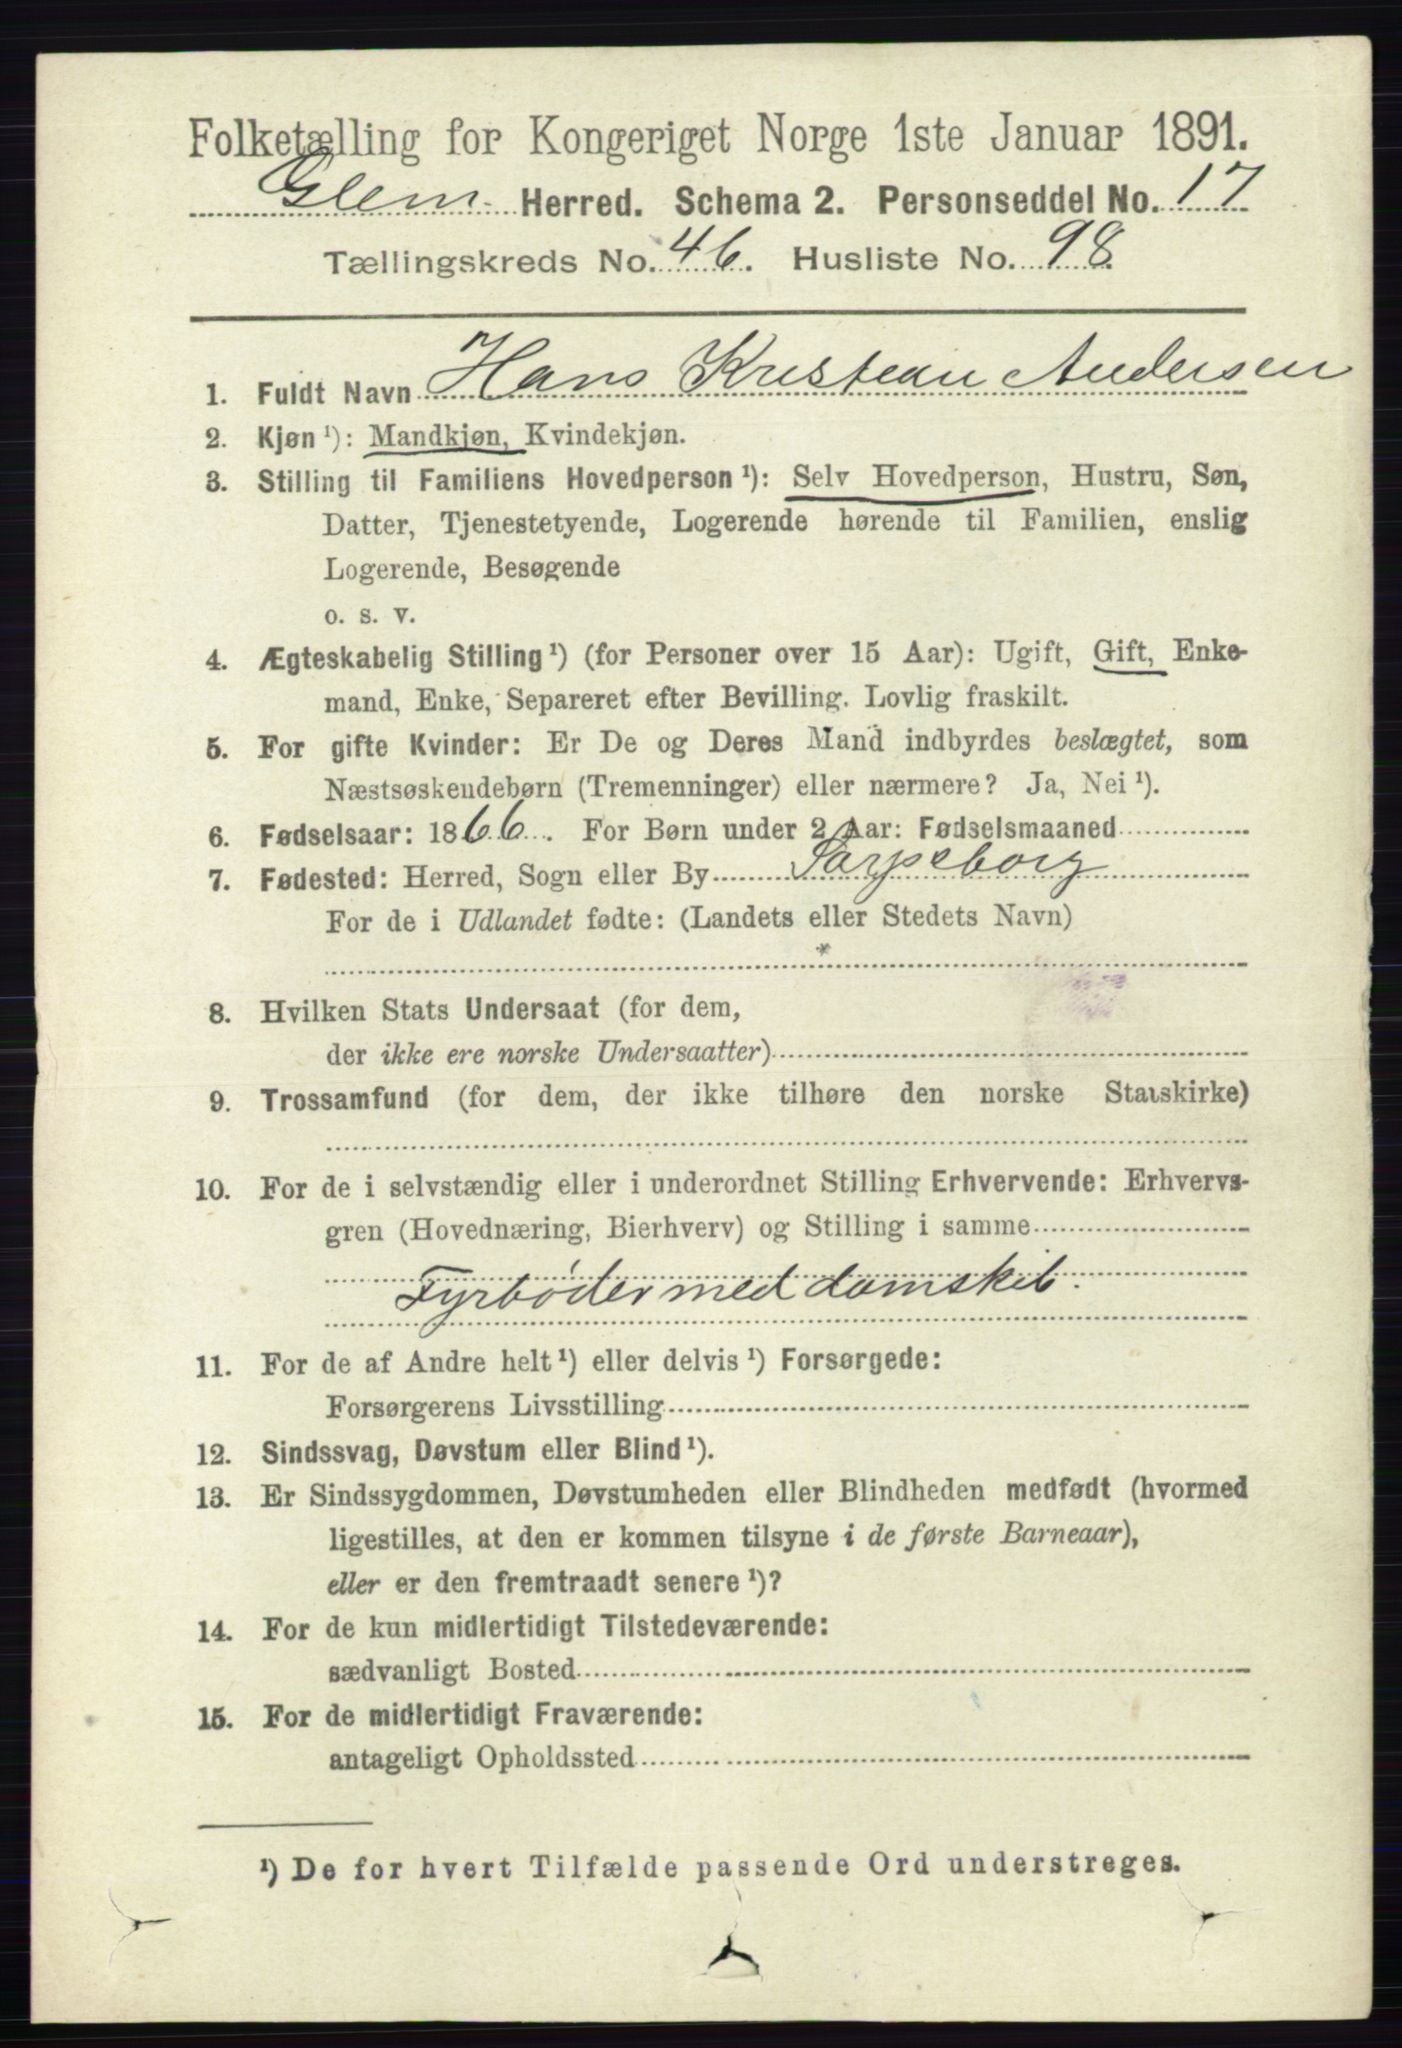 Folketælling for Kongeriget Norge 1ste Januar 1891.
Glem Herred. Schema 2. Personseddel No. 17
Tællingskreds No. 46. Husliste No. 98.
1. Fuldt Navn Hans Kristean Andersen
2. Kjøn ¹): Mandkjøn, Kvindekjøn.
3. Stilling til Familiens Hovedperson ¹): Selv Hovedperson, Hustru, Søn,
Datter, Tjenestetyende, Logerende hørende til Familien, enslig
Logerende, Besøgende
o. s. v.
4. Ægteskabelig Stilling ¹) (for Personer over 15 Aar): Ugift, Gift, Enke-
mand, Enke, Separeret efter Bevilling. Lovlig fraskilt.
5. For gifte Kvinder: Er De og Deres Mand indbyrdes beslægtet, som
Næstsøskendebørn (Tremenninger) eller nærmere? Ja, Nei ¹).
6. Fødselsaar: 1866. For Børn under 2 Aar: Fødselsmaaned
7. Fødested: Herred, Sogn eller By Sarpsborg
For de i Udlandet fødte: (Landets eller Stedets Navn)
8. Hvilken Stats Undersaat (for dem,
der ikke ere norske Undersaatter)
9. Trossamfund (for dem, der ikke tilhøre den norske Statskirke)
10. For de i selvstændig eller i underordnet Stilling Erhvervende: Erhvervs-
gren (Hovednæring, Bierhverv) og Stilling i samme
Fyrbøder med damskib.
11. For de af Andre helt ¹) eller delvis ¹) Forsørgede:
Forsørgerens Livsstilling
12. Sindssvag, Døvstum eller Blind ¹).
13. Er Sindssygdommen, Døvstumheden eller Blindheden medfødt (hvormed
ligestilles, at den er kommen tilsyne i de første Barneaar),
eller er den fremtraadt senere ¹)?
14. For de kun midlertidigt Tilstedeværende:
sædvanligt Bosted
15. For de midlertidigt Fraværende:
antageligt Opholdssted
¹) De for hvert Tilfælde passende Ord understreges.